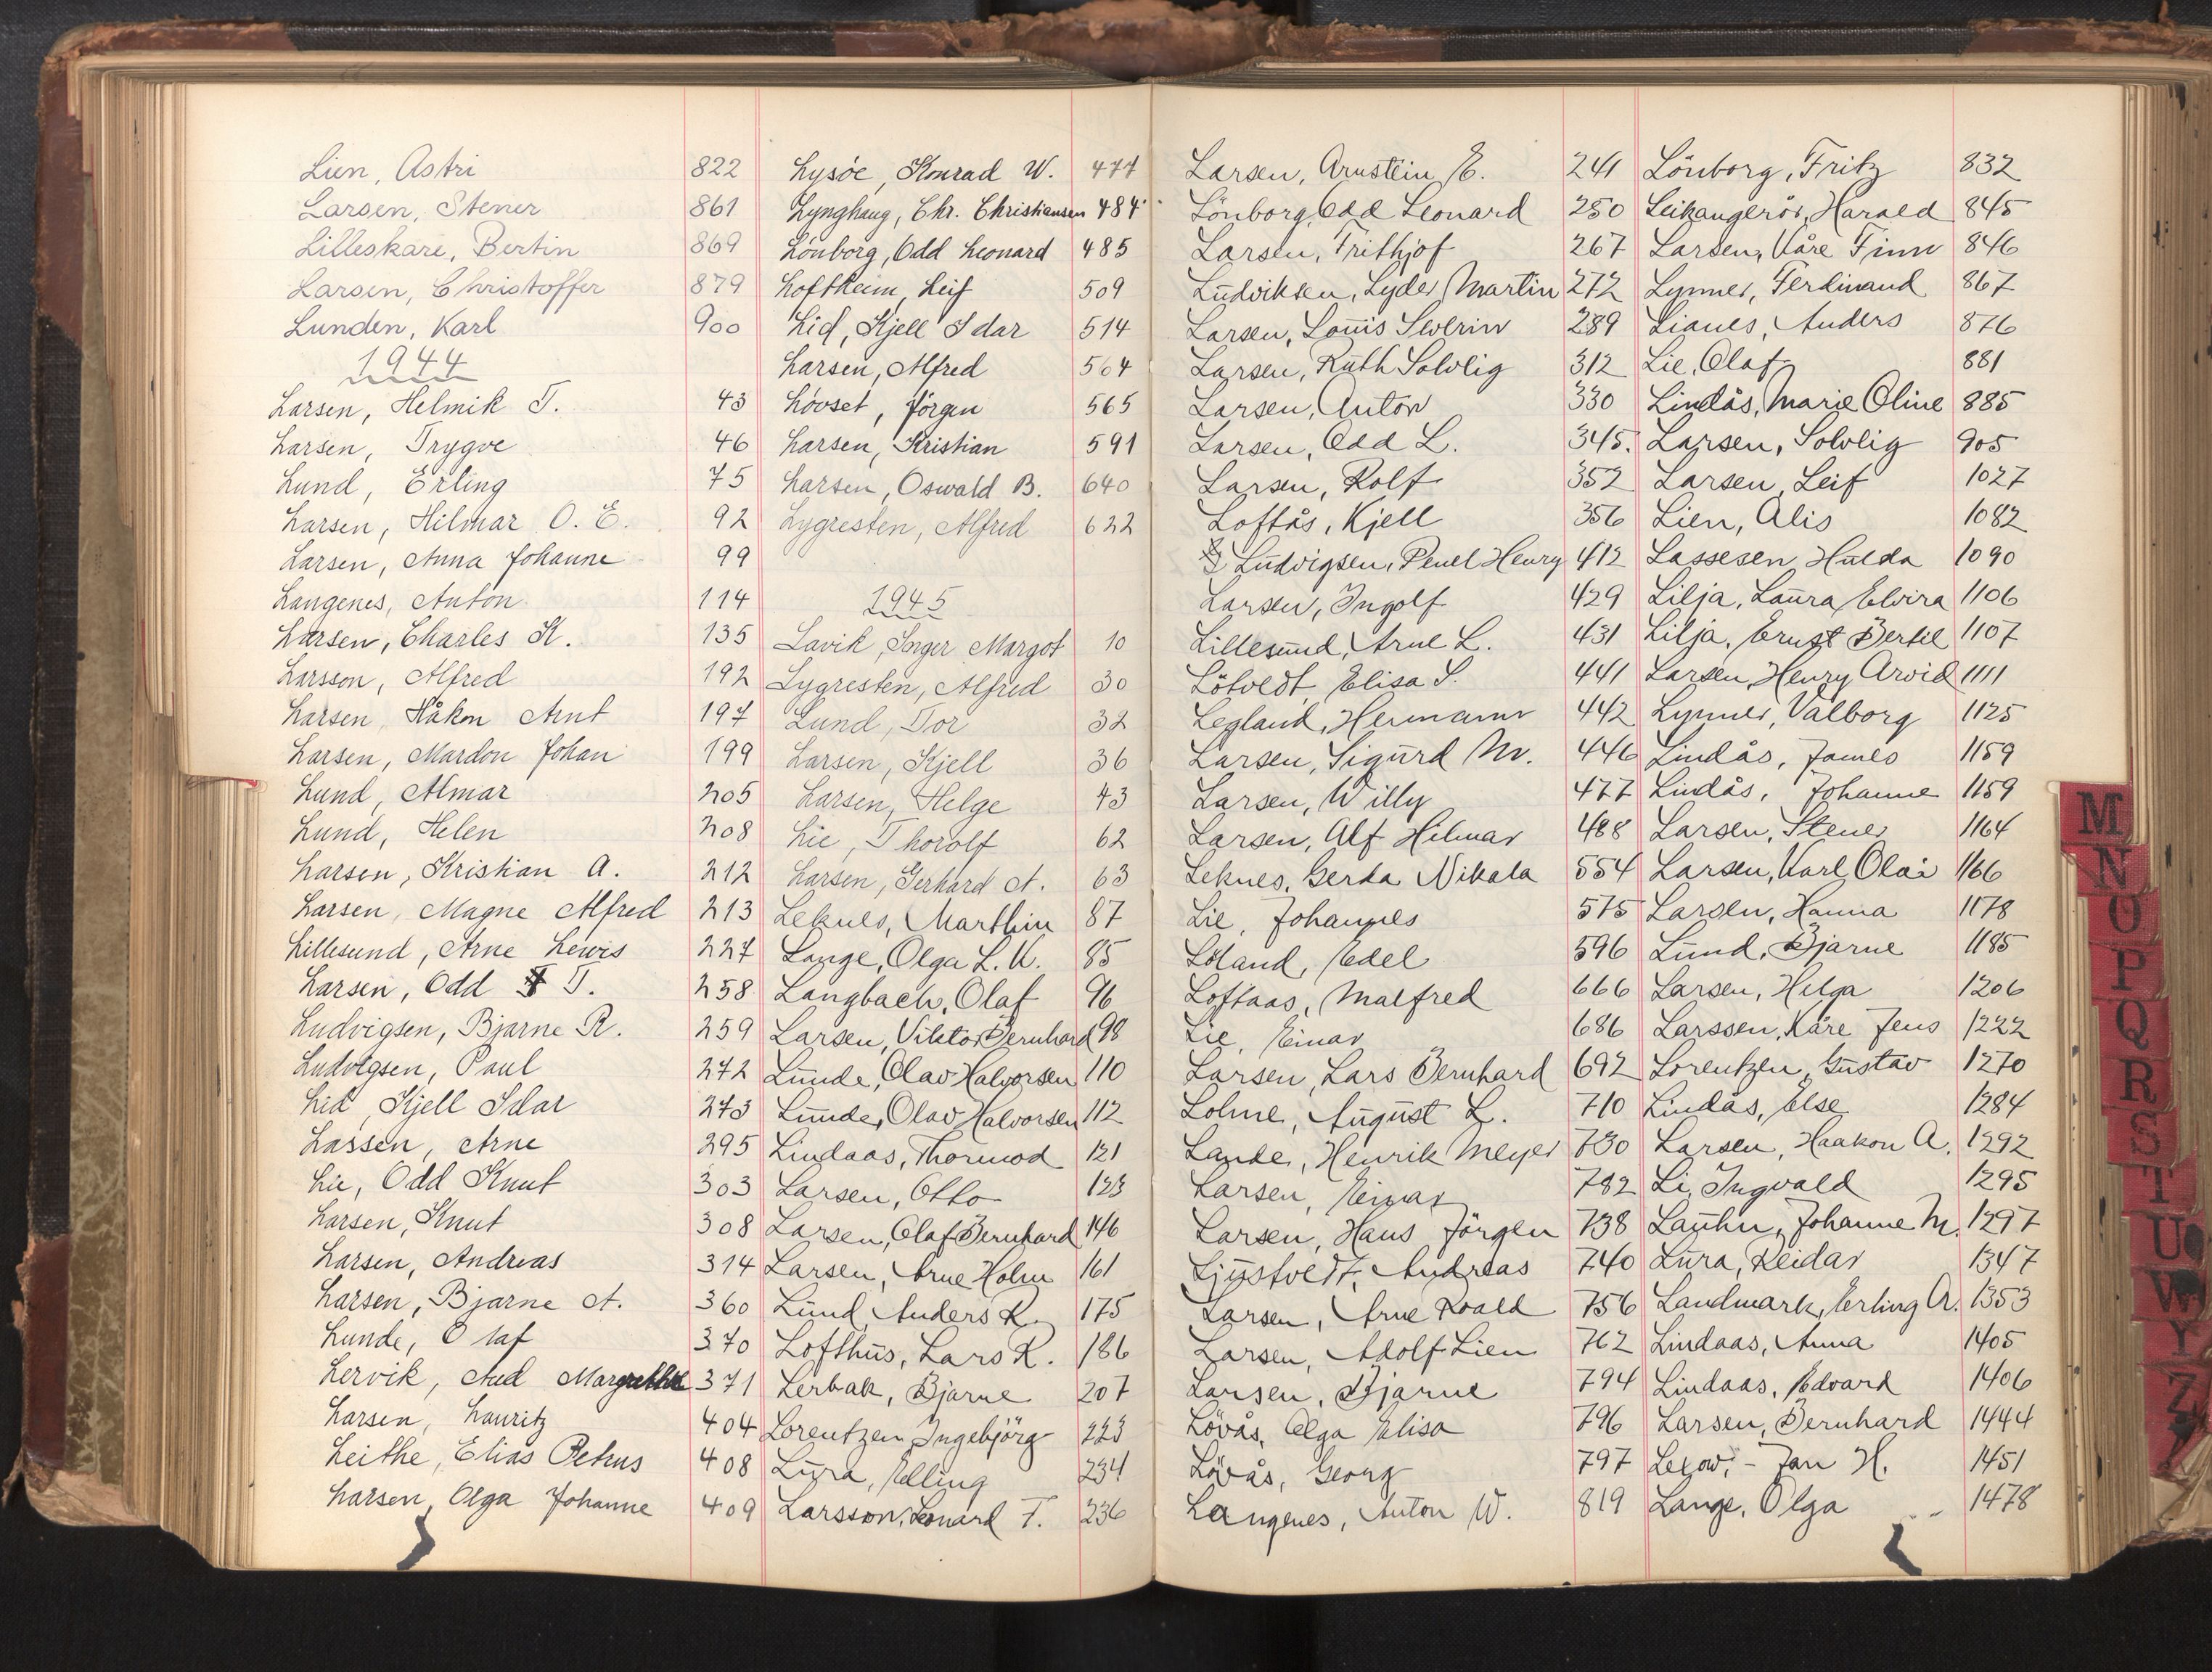 Lien, Astri 822
Larsen, Stener 861
Lilleskare, Bertin 869
Larsen, Christoffer 879
Lunden, Karl 900
1944
Larsen, Helmik T. 43
Larsen, Trygve 46
Lund, Erling 75
Larsen, Hilmar O. E. 92
Larsen, Anna Johanne 99
Langenes, Anton 114
Larsen, Charles K. 135
Larsson, Alfred 192
Larsen, Håkon Arnt 197
Larsen, Mardon Johan 199
Lund, Almar 205
Lund, Helen 208
Larsen, Kristian A. 212
Larsen, Magne Alfred 213
Lillesund, Arne Lewis 227
Larsen, Odd T. 258
Ludvigsen, Bjarne R. 259
Ludvigsen, Paul 272
Lid, Kjell Idar 273
Lassen, Arne 295
Lie, Odd Knut 303
Larsen, Knut 308
Larsen, Andreas 314
Larsen, Bjarne A. 360
Lunde, Olaf 370
Lervik, Aud Margrethe 371
Larsen, Lauritz 404
Leithe, Elias Petrus 408
Larsen, Olga Johanne 409
Lysöe, Konrad W. 477
Lynghaug, Chr. Christiansen 484
Lönborg, Odd Leonard 485
Loftheim, Leif 509
Lid, Kjell Idar 514
Larsen, Alfred 564
Lövset, Jörgen 565
Larsen, Kristian 591
Larsen, Oswald B. 640
Lygresten, Alfred 622
1945
Lavik, Inger Margot 10
Lygresten, Alfred 30
Lund, Tor 32
Larsen, Kjell 36
Larsen, Helge 43
Lie, Thorolf 62
Larsen, Gerhard A. 63
Leknes, Marthin 87
Lange, Olga L. K. 85
Langbach, Olaf 96
Larsen, Viktor Bernhard 98
Lunde, Olav Halvorsen 110
Lunde, Olav Halvorsen 112
Lindaas, Thormod 121
Larsen, Otto 123
Larsen, Olaf Bernhard 146
Larsen, Arne Holm 161
Lund, Anders K. 175
Lofthus, Lars K. 186
Lerbak, Bjarne 207
Lorentzen, Ingebjörg 223
Lura, Elling 234
Larsson, Leonard F. 236
Larsen, Arnstein E. 241
Lönborg, Odd Leonard 250
Larsen, Frithjof 267
Ludviksen, Lyder Martin 272
Larsen, Louis Severin 289
Larsen, Ruth Solvlig 312
Larsen, Anton 330
Larsen, Odd L. 345.
Larsen, Rolf 352
Loftås, Kjell 356
Ludvigsen, Penel Henry 412
Larsen, Ingolf 429
Lillesund, Arne L. 431
Lötvedt, Elisa S. 441
Legland, Hermann 442
Larsen, Sigurd M. 446
Larsen, Willy 477
Larsen, Alf Hilmar 488
Leknes, Gerda Nikala 554
Lie, Johannes 575
Loland, Edel 596
Loftaas, Malfred 666
Lie, Einar 686
Larsen, Lars Bernhard 692
Lohne, August L. 710
Lande, Henrik Meyer 730
Larsen, Einar 782
Larsen, Hans Jörgen 738
Ljustvedt, Andreas 740
Larsen, Arne Roald 756
Larsen, Adolf Lien 762
Larsen, Bjarne 794
Lövås, Olga Elisa 796
Lövås, Georg 797
Langenes, Anton W. 819
Lönborg, Fritz 832
Leikangerör, Harald 845
Larsen, Kåre Finn 846
Lynner, Ferdinand 867
Lianes, Anders 876
Lie, Olaf 881
Lindås, Marie Oline 885
Larsen, Solvlig 905
Larsen, Leif 1027
Lien, Alis 1082
Lassesen, Hulda 1090
Lilja, Laura Elvira 1106
Lilja, Ernst Bertil 1107
Larsen, Henry Arvid 1111
Lynner, Valborg 1125
Lindås, James 1159
Lindås, Johanne 1159
Larsen, Stener 1164
Larsen, Karl Olai 1166
Larsen, Hanna 1178
Lund, Bjarne 1185
Larsen, Helga 1206
Larssen, Kåre Jens 1222
Lorentzen, Gustav 1270
Lindås, Else 1284
Larsen, Haakon A. 1292
Li, Ingvald 1295
Lauhn, Johanne M. 1297
Lura, Reidar 1347
Landmark, Erling A. 1353
Lindaas, Anna 1405
Lindaas, Edvard 1406
Larsen, Bernhard 1444
Lexow, - Jan H. 1451
Lange, Olga 1478
M
N
O
P
Q
R
S
T
U
W
Y
Z